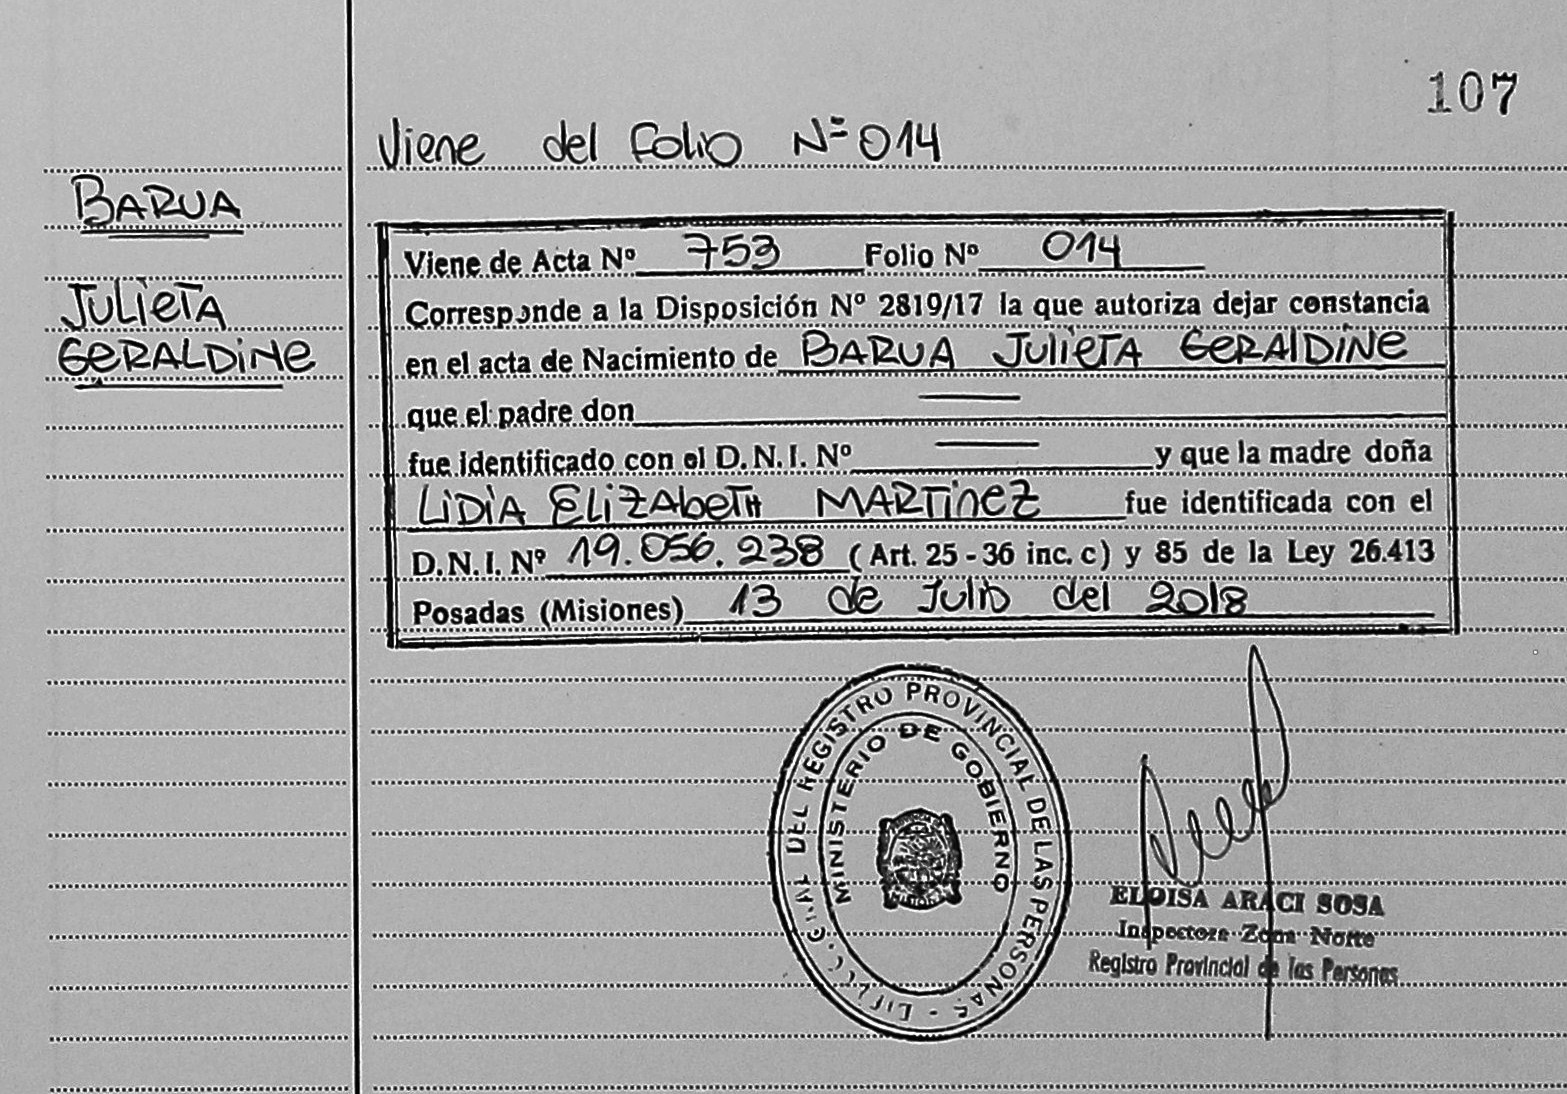 107
Viene del Folio Nº 014
BARUA
JULIETA
GERALDINE
Viene de Acta Nº 753 Folio Nº 014
Corresponde a la Disposición Nº 2819/17 la que autoriza dejar constancia
en el acta de Nacimiento de BARUA JULIETA GERALDINE
que el padre don —
fue identificado con el D. N. I. Nº — y que la madre doña
LIDIA ELIZABETH MARTINEZ fue identificada con el
D. N. I. Nº 19.056.238 (Art. 25 - 36 inc. c) y 85 de la Ley 26.413
Posadas (Misiones) 13 de Julio del 2018
DEL REGISTRO PROVINCIAL DE LAS PERSONAS
MINISTERIO DE GOBIERNO
ELOISA ARACI SOSA
Inspectora Zona Norte
Registro Provincial de las Personas